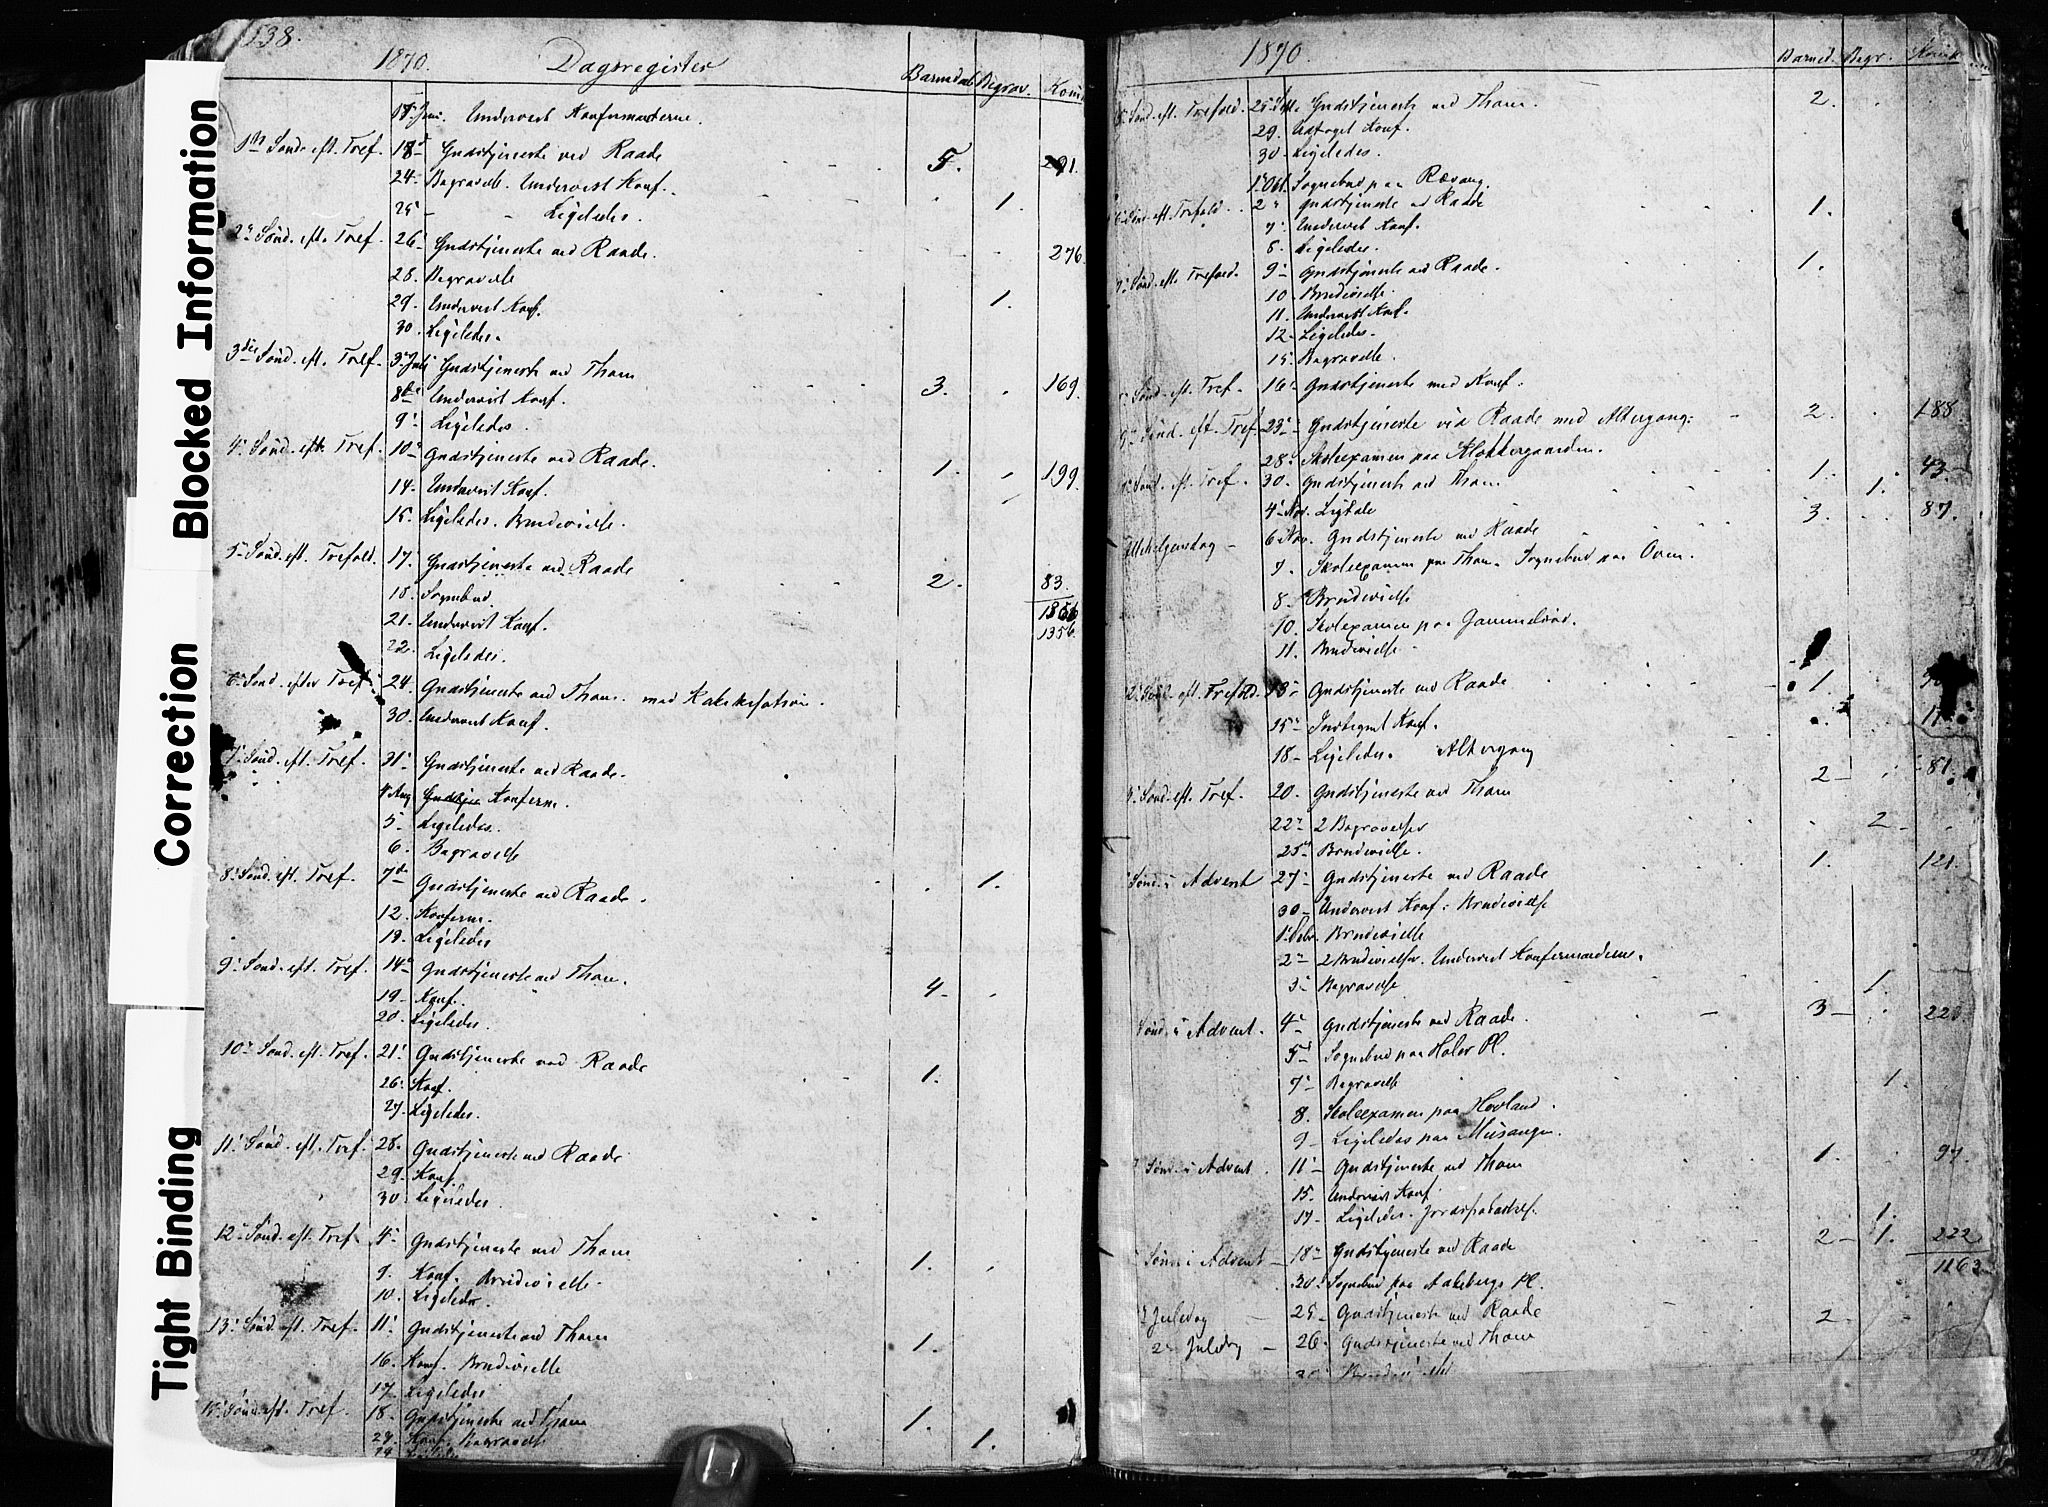 138.
1870. Dagsregister Barnedaab Begrav. Kom
17 Juni. Underviist Konfirmanterne.
1ste Sønd. eft. Tref. 18 Gudstjeneste ved Raade 5. 291.
24. Begravelse. Underviist Konf. 1.
25 Ligeledes.
2n Sønd. eft. Tref. 26 Gudstjeneste ved Raade. 276.
28. Begravelse
29. Underviist Konf. 1.
30. Ligeledes.
3die Sønd. eft. Tref. 3 Juli Gudstjeneste ved Thom 3. 169.
8de Underviist Konf.
9. Ligeledes.
4. Sønd. eft. Tref. 10 Gudstjeneste ved Raade. 1. 199.
14. Underviist Konf.
15. Ligeledes. Brudevielse.
5 Sønd. eft. Trefold. 17. Gudstjeneste ved Raade 2. 83.
18. Sognebud
21. Underviist Konf. 1356
1356.
22. Ligeledes.
6 Sønd. efter Tref. 24. Gudstjeneste ved Thom. med Katekisation.
30. Underviist Konf.
7 Sønd. eft. Tref. 31. Gudstjeneste ved Raade.
4 Aug. Konferm.
5 Ligeledes.
6. Begravelse
8. Sønd. eft. Tref. 7de Gudstjeneste ved Raade. 1.
12. Konferm.
13. Ligeledes
9. Sønd. eft. Tref. 14 Gudstjeneste ved Thom. 4
19 Konf.
20. Ligeledes.
10 Sønd. eft. Tref. 21. Gudstjeneste ved Raade 1.
26. Konf.
27. Ligeledes.
11. Sønd. eft. Tref. 28. Gudstjeneste ved Raade
29. Konf.
30. Ligeledes.
12 Sønd. eft. Tref. 4 Gudstjeneste ved Thom 1.
9. Konf. Brudevielse.
10. Ligeledes.
13. Sønd. eft. Tref. 11. Gudstjeneste ved Thom 1.
16. Konf. Brudevielse
17. Ligeledes
Sønd. eft. Tref. 18. Gudstjeneste ved Thom 1.
Konf. Begravelse 1.
1870. Barned. Begr. Kom
Sønd. eft. Trefold. 25 Gudstjeneste ved Thom. 2.
29. Konf.
30. Ligeledes.
1 Okt. Sognebud paa
Sønd. eft. Trefold. 2 Gudstjeneste ved Raade 1.
7. Underviist Konf.
8. Ligeledes.
Sønd. eft. Trefold. 9 Gudstjeneste ved Raade. 1.
10. Brudevielse.
11. Underviist Konf.
12. Ligeledes.
15. Begravelse.
Sønd. eft. Tref. 16 Gudstjeneste med Konf.
Sønd. eft. Tref. 23 Gudstjeneste ved Raade med Altergang. 2. 188.
28. Skoleexamen paa Klokkergaarden.
Sønd. eft. Tref. 30. Gudstjeneste ved Thom 1. 1. 43.
4 Nov. 3. 87.
Allehelgensdag 6 Nov. Gudstjeneste ved Raade
7. Skoleexamen paa Thom. Sognebud paa Oven.
8. Brudevielse
10. Skolexamen paa Gammelrød.
11. Brudevielse
Sønd. eft. Trefold. 13 Gudstjeneste ved Raade 1.
15 Konf.
18 Ligeledes. Altergang
Sønd. eft. Tref. 20. Gudstjeneste ved Thom 2 81.
22 2 Begravelser 2
25 Brudevielse.
Sønd. i Advent 27 Gudstjeneste ved Raade 1. 121.
30 Underviist Konf. Brudevielse
1. Debr Brudevielse
2 2 Brudevielser. Underviist Konfermanderne.
3 Begravelse 1.
Sønd. i Advent. 4 Gudstjeneste ved Raade. 3
5 Sognebud paa Pl.
7 Begravelse 1.
8. Skoleexamen paa Hovland.
9 Ligeledes paa Missingen.
Sønd. i Advent. 11 Gudstjeneste ved Thom 1. 97.
15. Underviist Konf
17 Ligeledes. Jordspaakast. 1.
Sønd. i Advent 18 Gudstjeneste ved Raade 2 1. 222
30. Sognebud paa Aakebergs Pl. 1163
Juledag 25 Gudstjeneste ved Raade 2
2 Juledag 26. Gudstjeneste ved Thom
30 Brudevielse
Tight Binding Correction Blocked Information